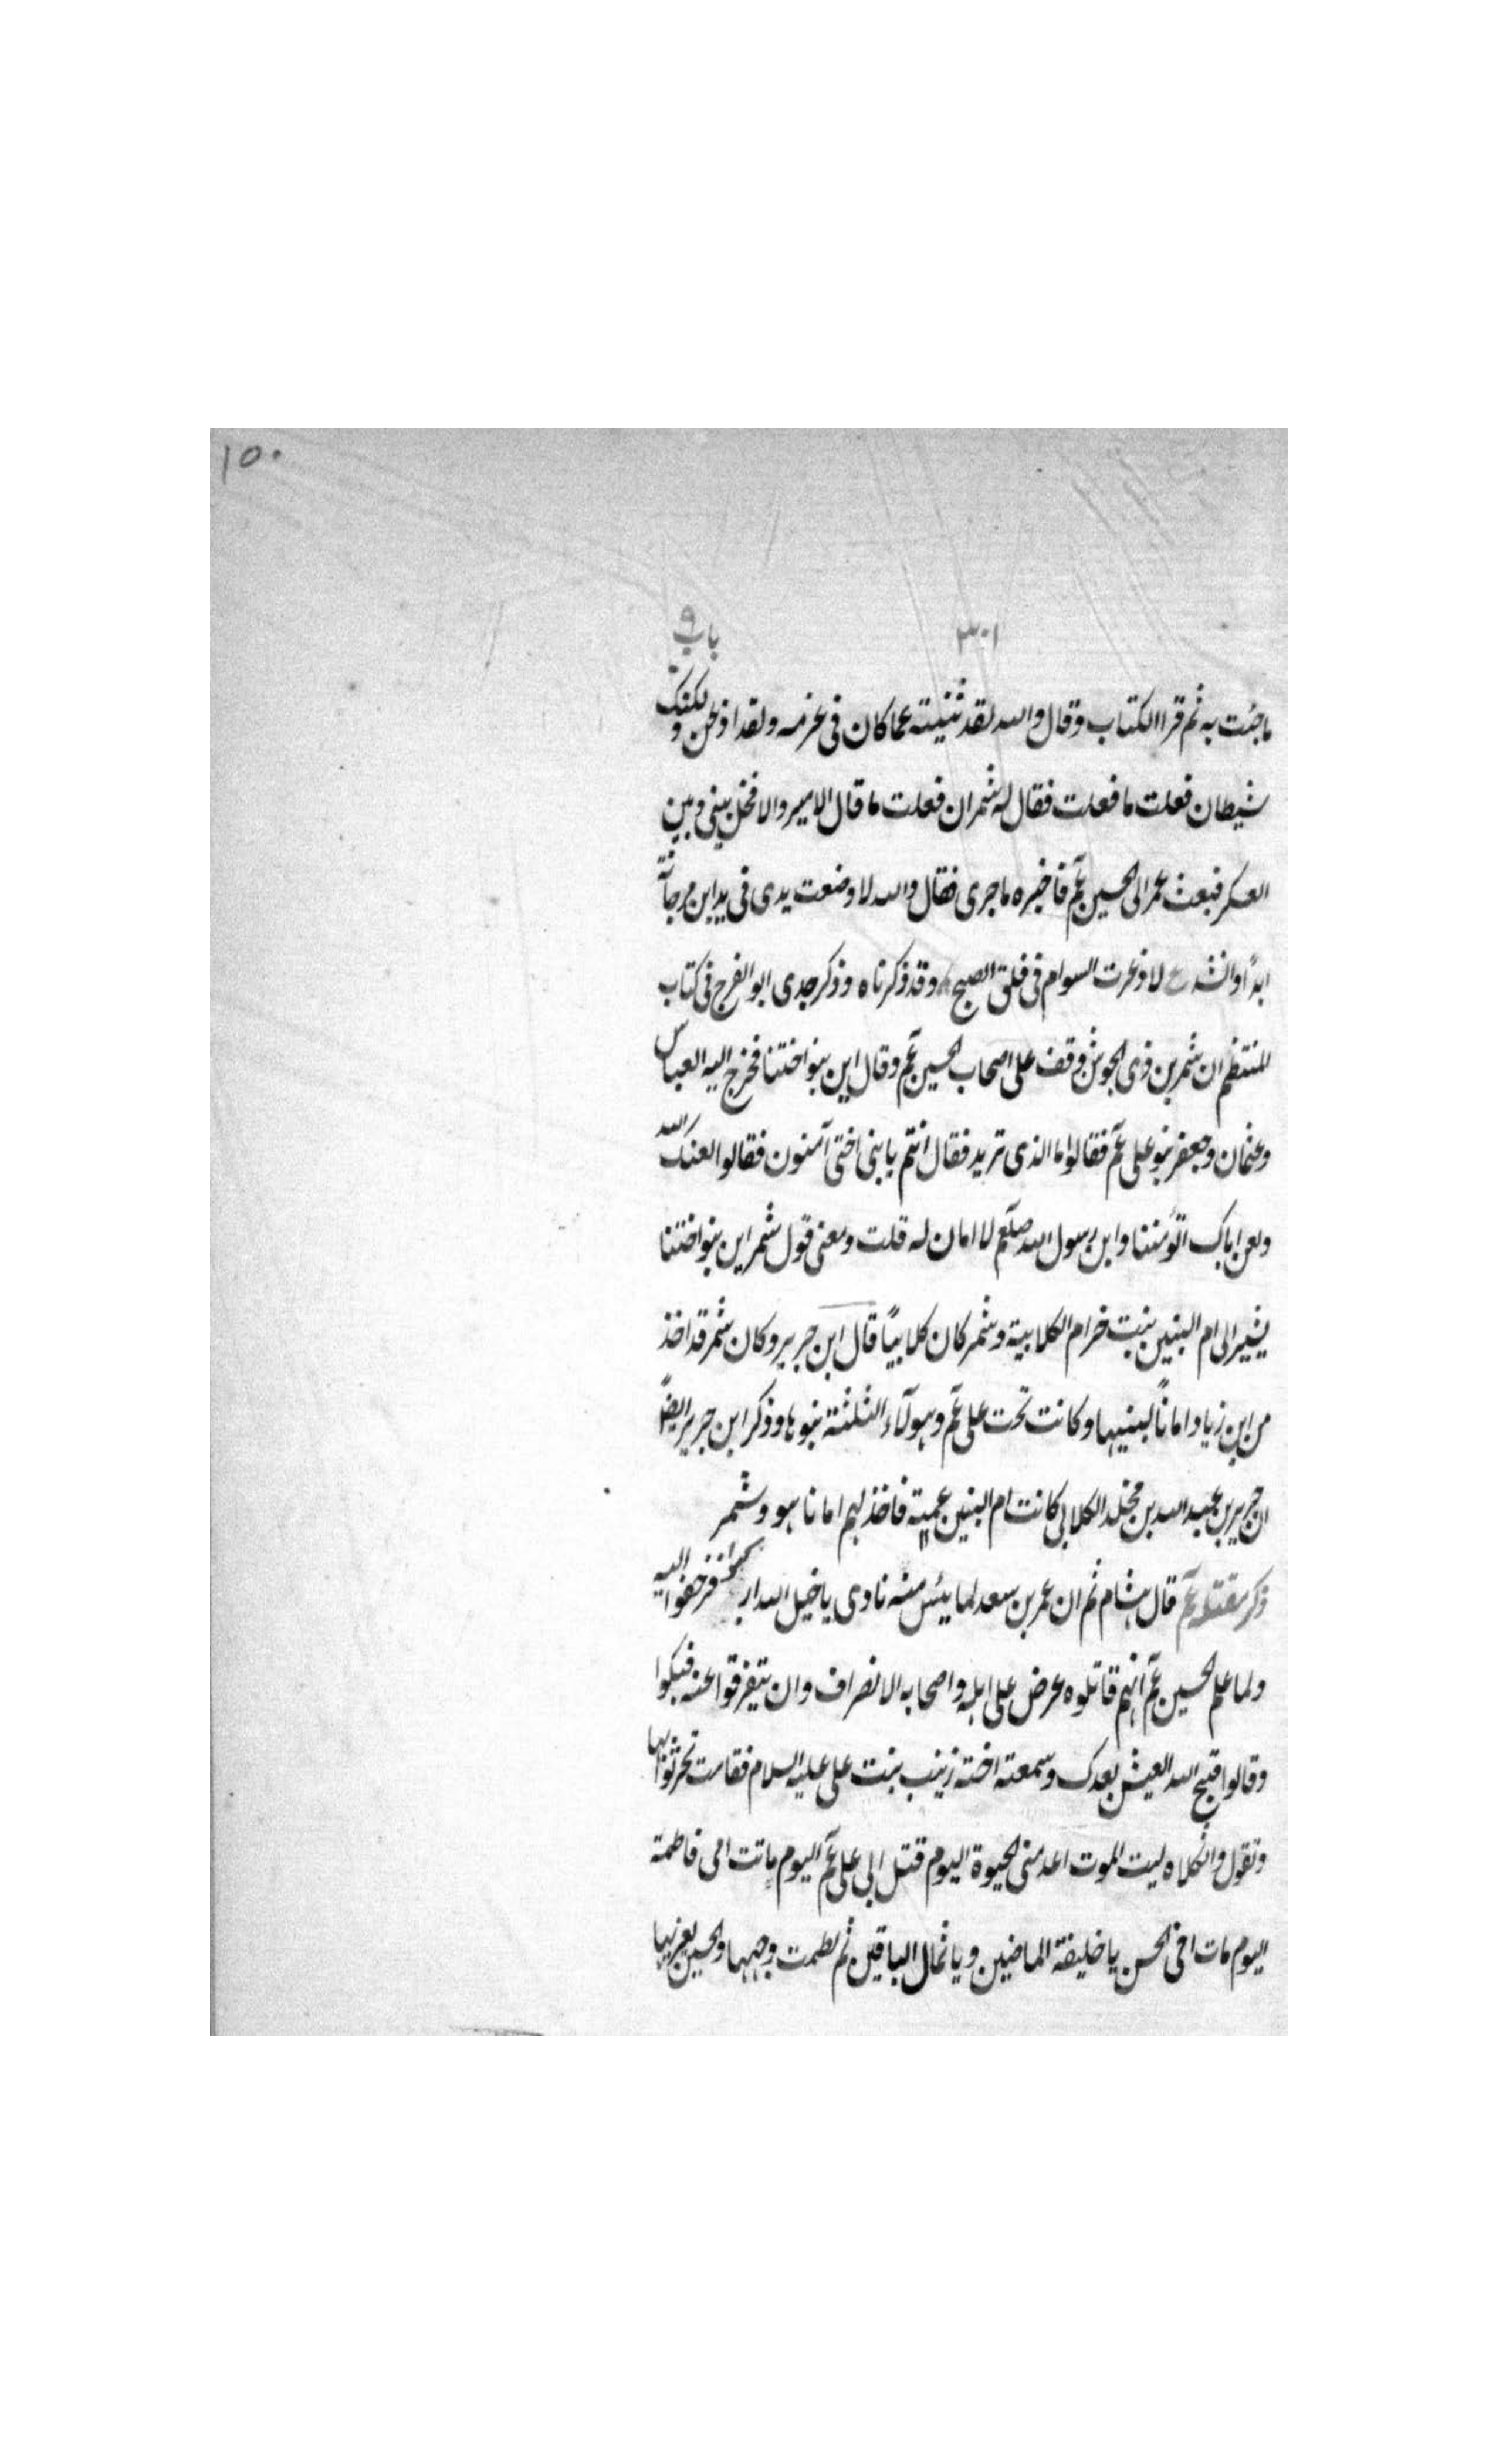 ١٥٠
٣٠١ باب ٩
ما جئت به ثم قرا الكتاب وقال والله لقد ثنيته عما كان فى عزمه ولقد اذعن ولكنك
شيطان فعلت ما فعلت فقال له شمر ان فعلت ما قال الامير والا فخل بينى وبين
العسكر فبعث عمر الى الحسين عم فاخبره ما جرى فقال والله لا وضعت يدى فى يد ابن مرجانة
ابدًا وانشد ع لا ذعرت السوام فى فلق الصبح وقد ذكرناه وذكر جدى ابو الفرج فى كتاب
المنتظم ان شمر بن ذى الجوشن وقف على اصحاب الحسين عم وقال اين بنو اختنا فخرج اليه العباس
وعثمان وجعفر بنو على عم فقالوا ما الذى تريد فقال انتم يا بنى اختى آمنون فقالوا لعنك الله
ولعن اباك اتؤمننا وابن رسول الله صلعم لا امان له قلت ومعنى قول شمر اين بنو اختنا
يشير الى ام البنين بنت خرام الكلابية وشمر كان كلابيًا قال ابن جرير وكان شمر قد اخذ
من ابن زياد امانًا لبنيها وكانت تحت على عم وهولآء الثلثة بنوها وذكر ابن جرير ايضًا
ان جرير بن عبد الله بن مخلد الكلابى كانت ام البنين عميته فاخذ لهم امانا هو وشمر
ذكر مقتله عم قال هشام ثم ان عمر بن سعد لما يئس منه نادى يا خيل الله اركبوا فزحفوا اليه
ولما علم الحسين عم انهم قاتلوه عرض على اهله واصحابه الانصراف وان يتفرقوا عنه فبكوا
وقالوا قبح الله العيش بعدك وسمعته اخته زينب بنت على عليه السلام فقامت تجر ثوبها
وتقول واثكلاه ليت الموت اعدمنى الحيوة اليوم قتل ابى على عم اليوم ماتت امى فاطمة
اليوم مات اخى الحسن يا خليفة الماضين ويا ثمال الباقين ثم لطمت وجهها والحسين يعزيها